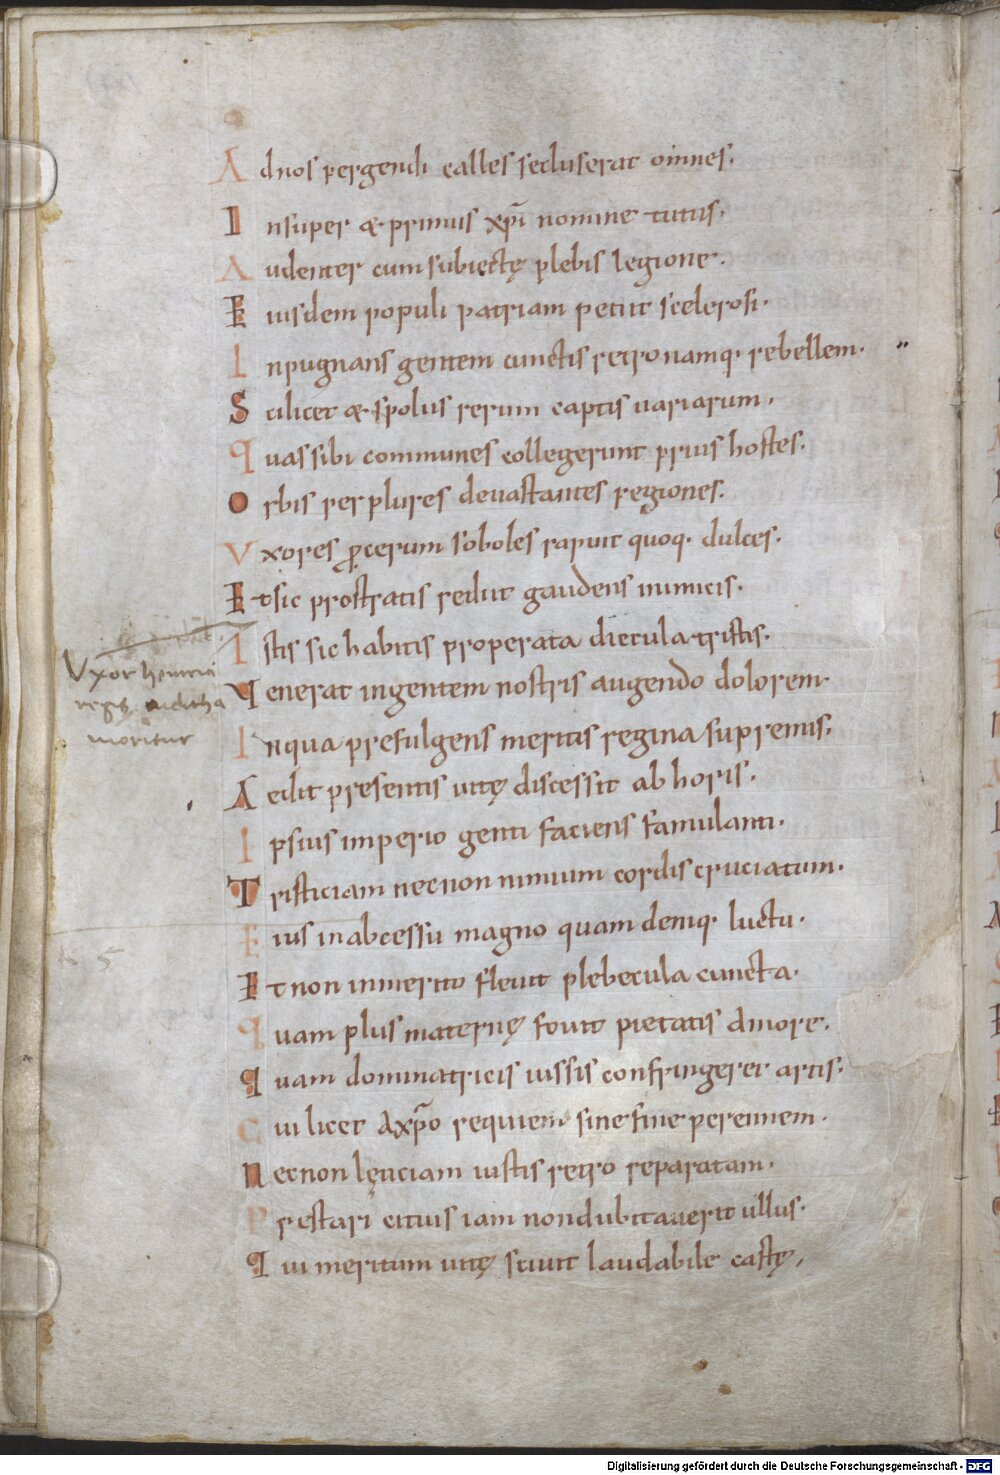 Ad nos pergendi calles secluserat omnes.
Insuper & primus xp̄i nomine tutus.
Audenter cum subiectę plebis legione.
Eiusdem populi patriam petiit scelerosi.
Inpugnans gentem cunctis retro namq· rebellem.
Scilicet & spoliis rerum captis uariarum.
Quas sibi communes collegerunt prius hostes.
Orbis per plures deuastantes regiones.
Vxores p̱cerum soboles rapuit quoq· dulces.
Et sic prostratis rediit gaudens inimicis.
Istis sic habitis properata diecula tristis.
Venerat ingentem nostris augendo dolorem·
Vxor heinrici
regis aiditha
moritur
In qua prefulgens meritis regina supremis.
Aedit presentis uitę discessit ab horis.
Ipsius imperio genti faciens famulanti.
Tristiciam necnon nimium cordis cruciatum.
Eius in abcessu magno quam deniq· luctu.
Et non inmerito fleuit plebecula cuncta.
Quam plus maternę fouit pietatis amore.
Quam dominatricis iussis confringeret artis.
Cui licet a xp̄o requiem sine fine perennem.
Necnon lęticiam iustis retro reparatam.
Prestari citius iam non dubitauerit ullus.
Qui meritum uitę sciuit laudabile castę,
Digitalisierung gefördert durch die Deutsche Forschungsgemeinschaft - DFG